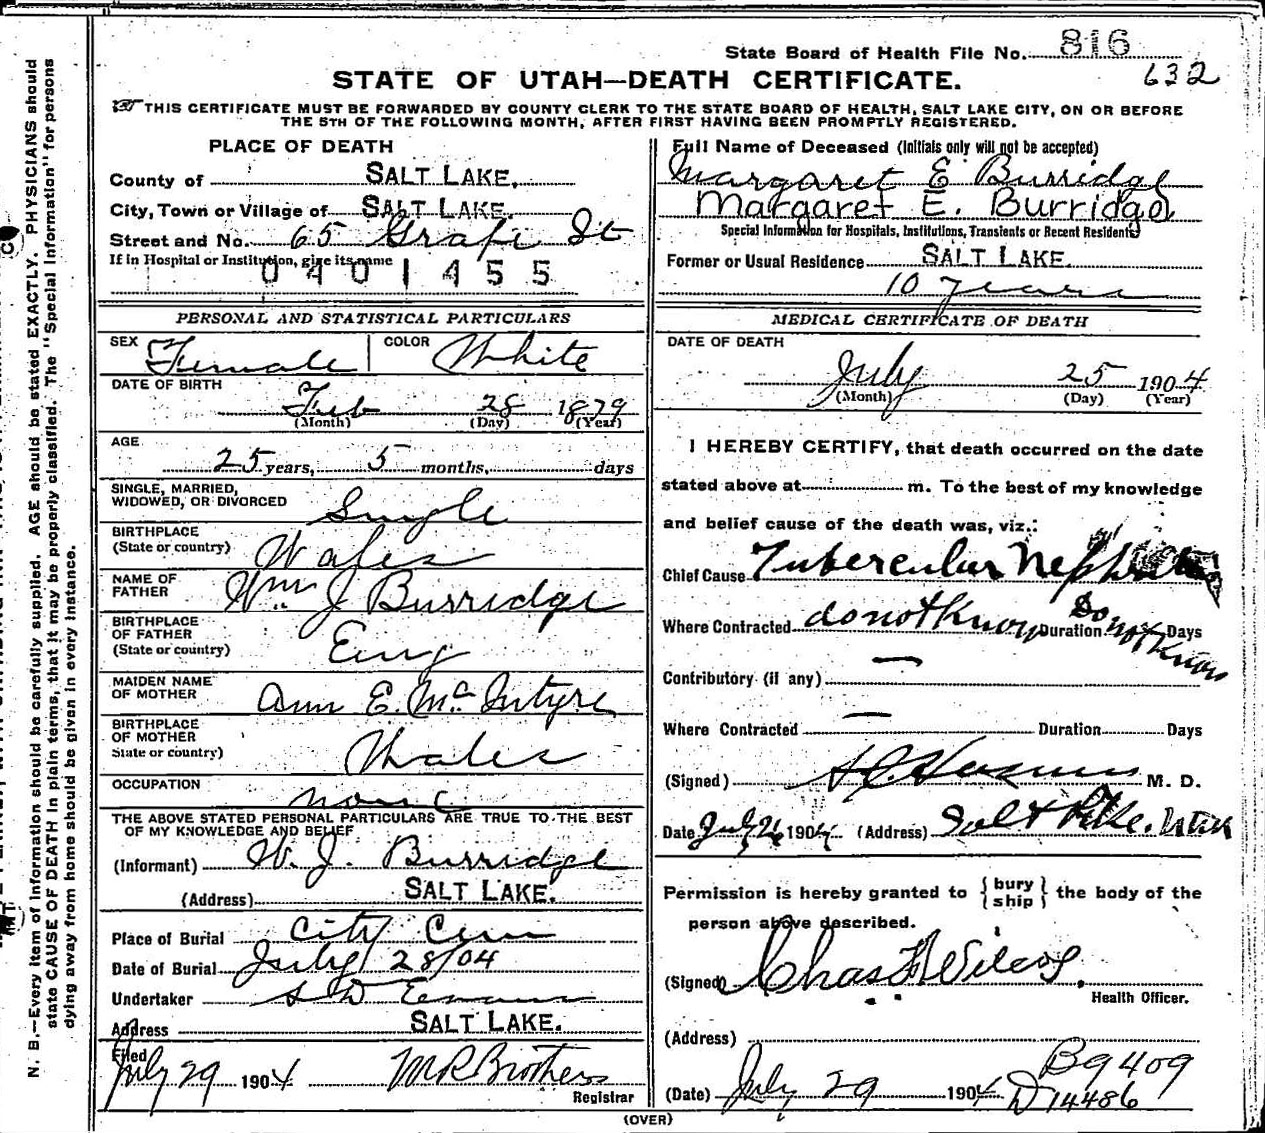 State Board of Health File No. 816
632
STATE OF UTAH—DEATH CERTIFICATE.
THIS CERTIFICATE MUST BE FORWARDED BY COUNTY CLERK TO THE STATE BOARD OF HEALTH, SALT LAKE CITY, ON OR BEFORE
THE 5TH OF THE FOLLOWING MONTH, AFTER FIRST HAVING BEEN PROMPTLY REGISTERED.
PLACE OF DEATH
County of SALT LAKE.
City, Town or Village of SALT LAKE.
Street and No. 65 Grape St
If in Hospital or Institution, give its name
0401455
PERSONAL AND STATISTICAL PARTICULARS
SEX Female COLOR White
DATE OF BIRTH
Feb 28 1879
(Month) (Day) (Year)
AGE
25 years, 5 months, days
SINGLE, MARRIED,
WIDOWED, OR DIVORCED Single
BIRTHPLACE
(State or country) Wales
NAME OF
FATHER Wm J Burridge
BIRTHPLACE
OF FATHER
(State or country) Eng
MAIDEN NAME
OF MOTHER Ann E. McIntyre
BIRTHPLACE
OF MOTHER
State or country) Wales
OCCUPATION
none
THE ABOVE STATED PERSONAL PARTICULARS ARE TRUE TO THE BEST
OF MY KNOWLEDGE AND BELIEF
(Informant) W. J. Burridge
(Address) SALT LAKE.
Place of Burial City Cem
Date of Burial July 28/04
Undertaker S D Evans
Address SALT LAKE.
Filed
July 29 1904 M R Brothers
Registrar
Full Name of Deceased (Initials only will not be accepted)
Margaret E Burridge
Margaret E. Burridge
Special Information for Hospitals, Institutions, Transients or Recent Residents
Former or Usual Residence SALT LAKE.
10 years
MEDICAL CERTIFICATE OF DEATH
DATE OF DEATH
July 25 1904
(Month) (Day) (Year)
I HEREBY CERTIFY, that death occurred on the date
stated above at m. To the best of my knowledge
and belief cause of the death was, viz.:
Chief Cause Tubercular Nephritis
Where Contracted do not Know Duration Do not Know Days
Contributory (if any) —
Where Contracted — Duration Days
(Signed) M. D.
Date July 26 1904 (Address) Salt Lake. Utah
Permission is hereby granted to {bury
ship} the body of the
person above described.
(Signed) Chas F Wilcox.
Health Officer.
(Address)
(Date) July 29 1904
B9409
D14486
(OVER)
N. B.—Every item of information should be carefully supplied. AGE should be stated EXACTLY. PHYSICIANS should
state CAUSE OF DEATH in plain terms, that it may be properly classified. The "Special Information" for persons
dying away from home should be given in every instance.